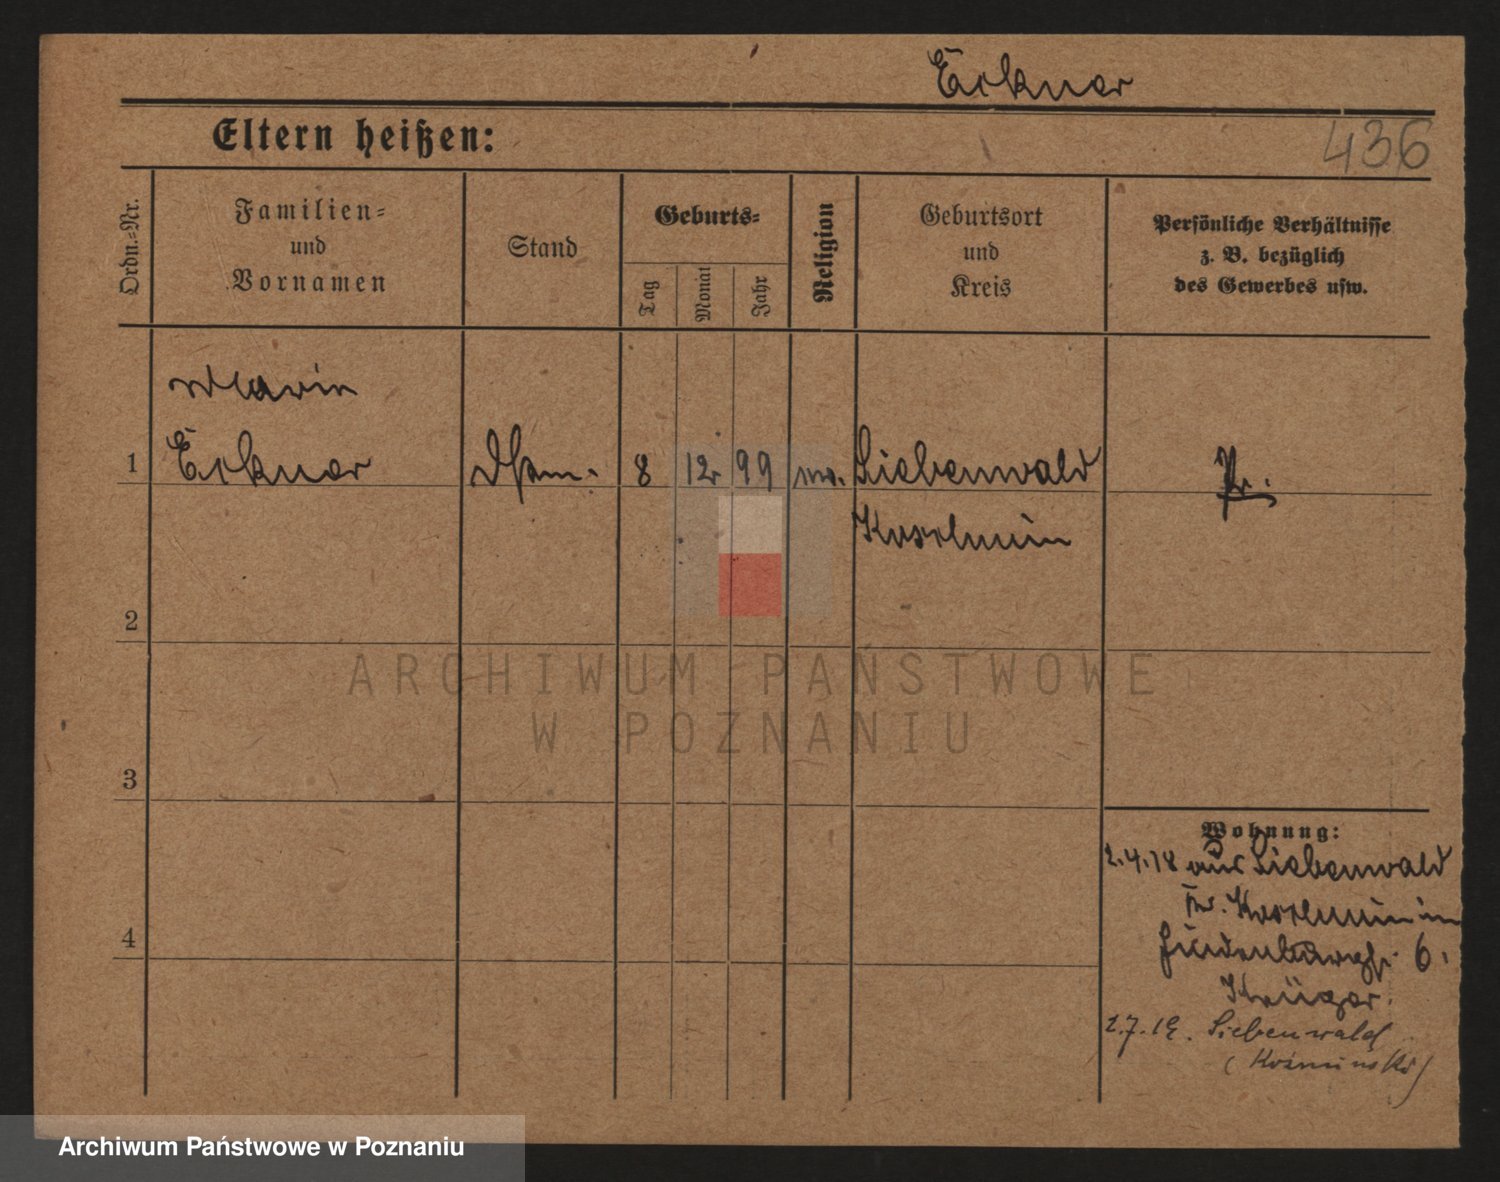 Eckner
Eltern heißen:
436
Ordn.-Nr.
Familien-
und
Vornamen
Stand
Geburts-
Tag
Monat
Jahr
Religion
Geburtsort
und
Kreis
Persönliche Verhältnisse
z. B. bezüglich
des Gewerbes usw.
Marie
1 Eckner 8 12 99 Siebenwald Pr.
Koschmin
2
ARCHIWUM PAŃSTWOWE
W POZNANIU
3
Wohnung:
2.4.18 aus Siebenwald
Kr. Koschmin in
4
6.
Krüger.
2.7.19. Siebenwald
(Koźminski)
Archiwum Państwowe w Poznaniu